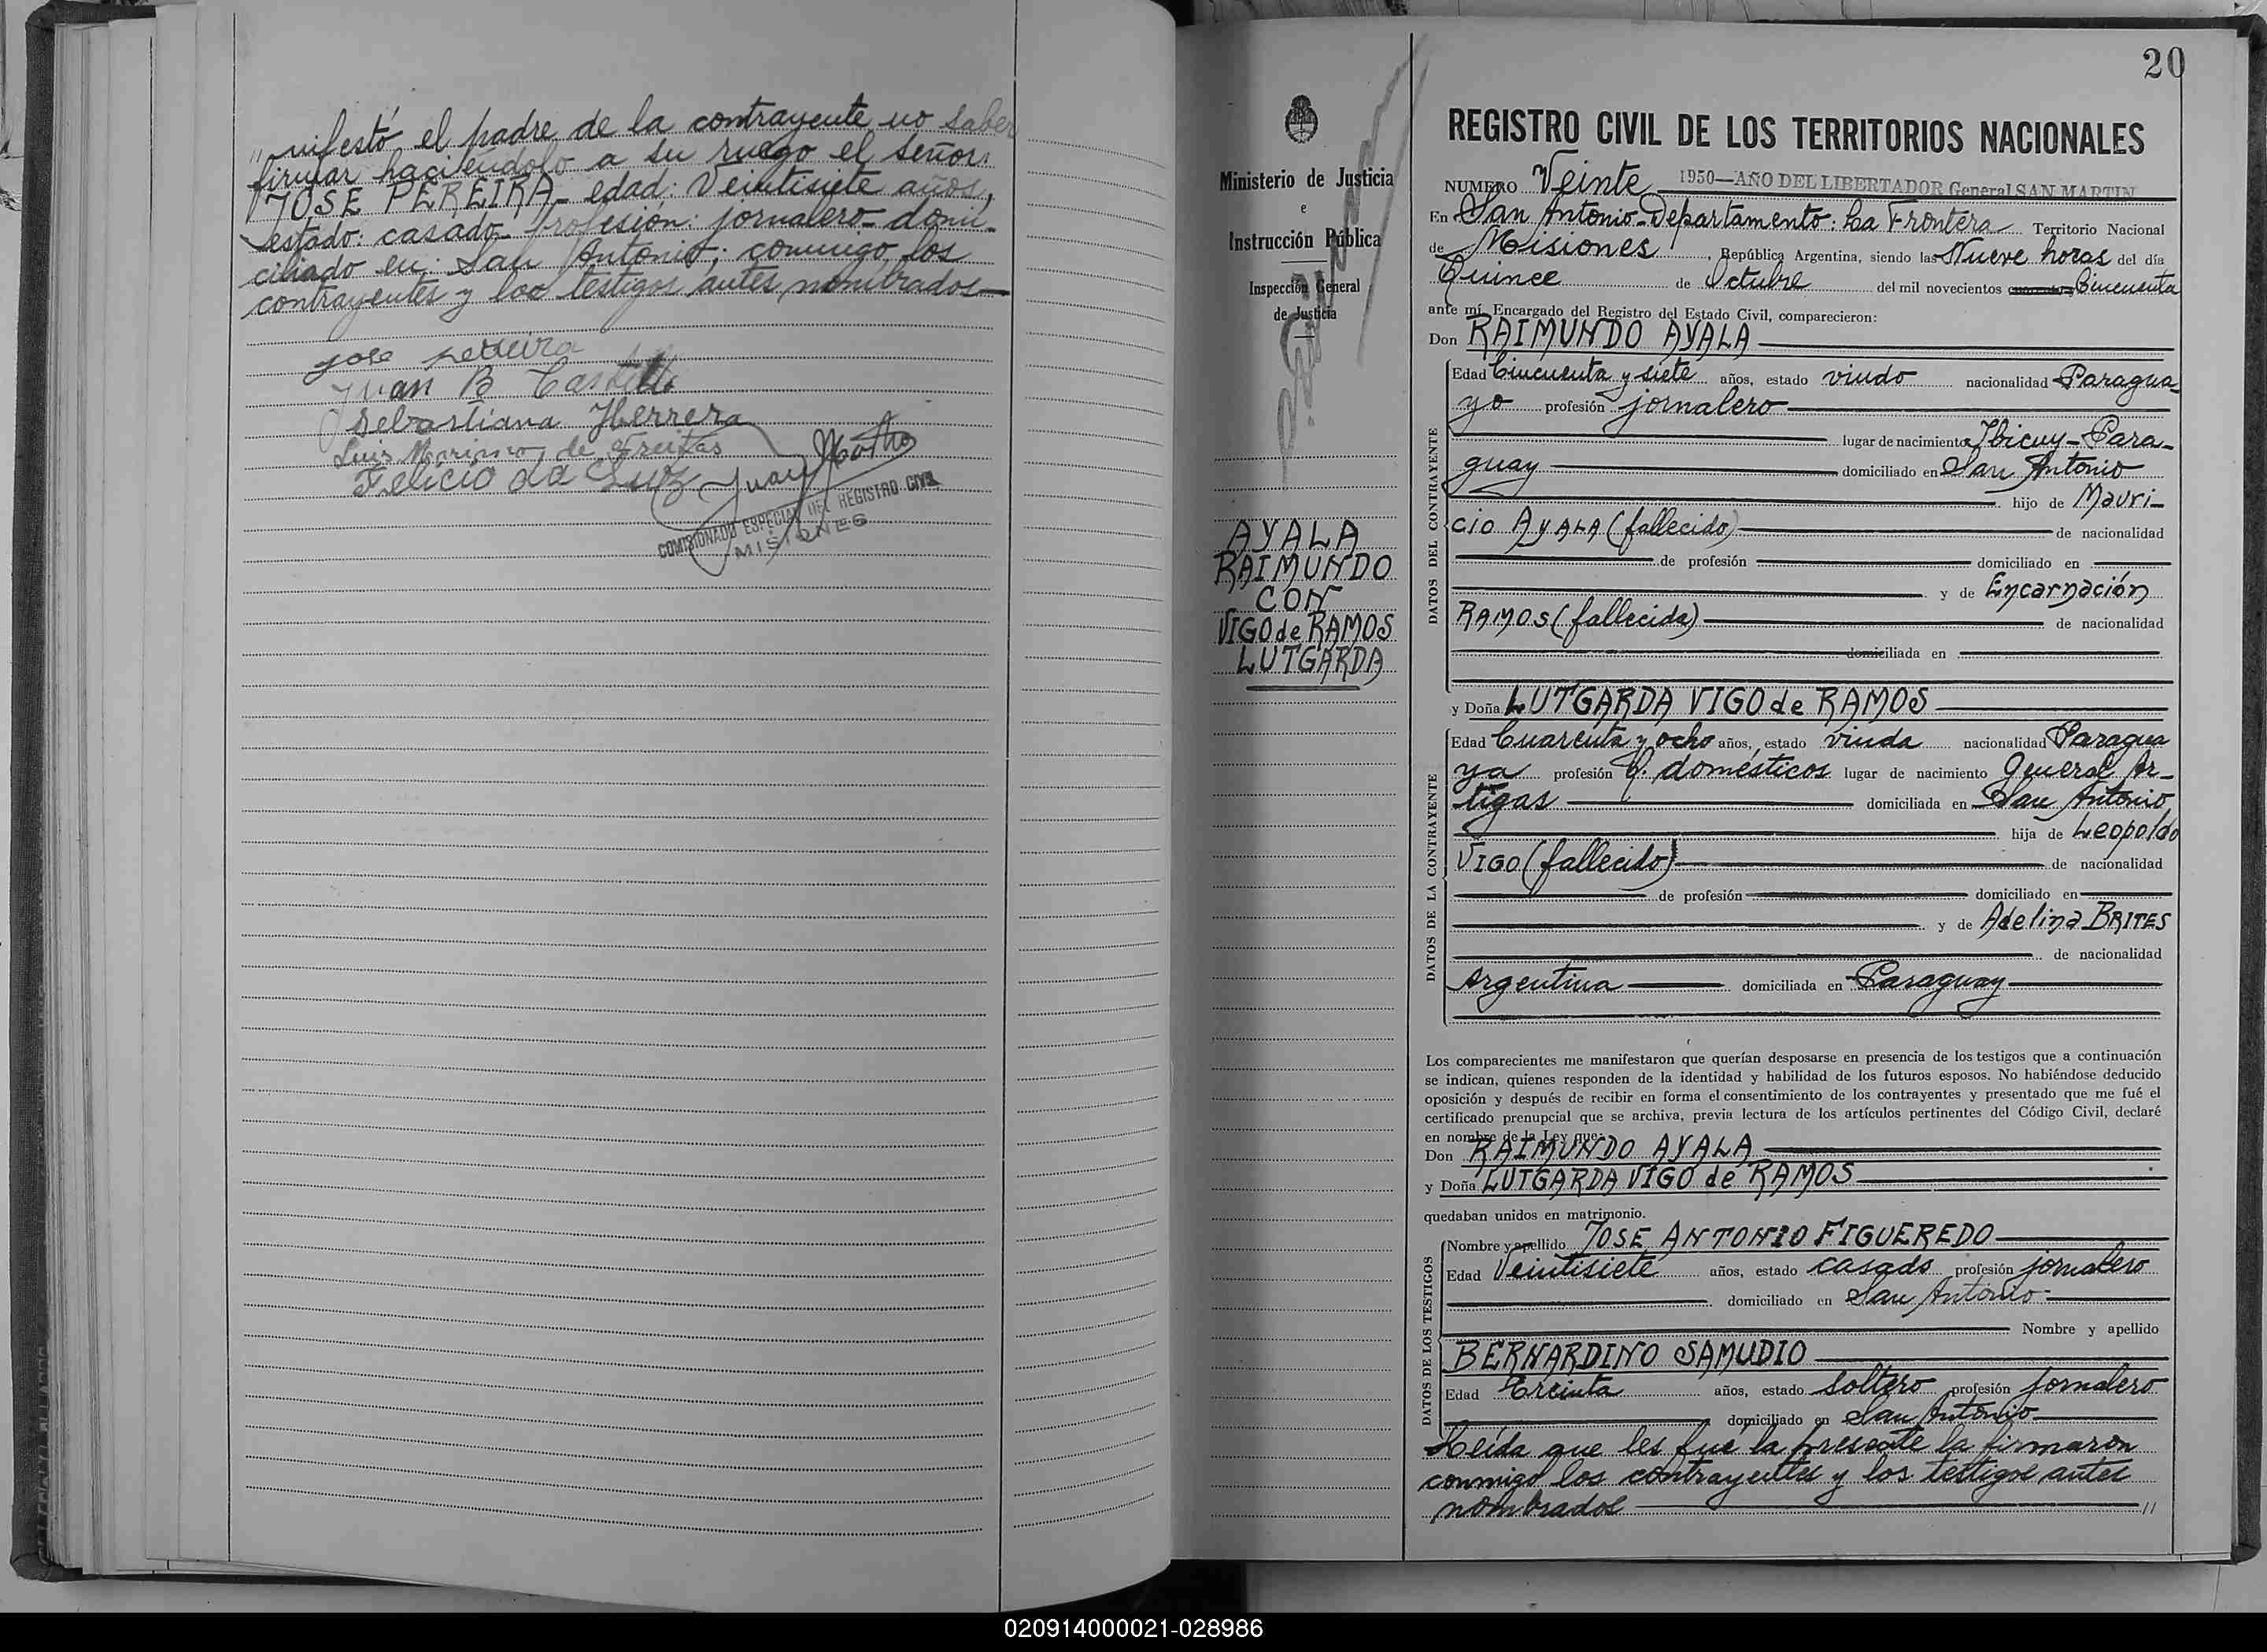 " nifestó el padre de la contrayente no saber
firmar haciéndolo a su ruego el señor:
JOSE PEREIRA - edad: Veintisiete años,
estado: casado - profesión: jornalero - domi-
ciliado en: San Antonio; conmigo los
contrayentes y los testigos antes nombrados
jose pereira
Juan B Castillo
Sebastiana Herrera
Luis de Freitas
Felicio da Luz
Juan
COMISIONADO ESPECIAL DEL REGISTRO CIVIL
MISIONES
Ministerio de Justicia
e
Instrucción Pública
Inspección General
de Justicia
AYALA
RAIMUNDO
CON
VIGO de RAMOS
LUTGARDA
20
REGISTRO CIVIL DE LOS TERRITORIOS NACIONALES
NUMERO Veinte 1950—AÑO DEL LIBERTADOR General SAN MARTIN
En San Antonio - Departamento: La Frontera Territorio Nacional
de Misiones, República Argentina, siendo las Nueve horas del día
Quince de Octubre del mil novecientos Cincuenta
ante mí, Encargado del Registro del Estado Civil, comparecieron:
Don RAIMUNDO AYALA
DATOS DEL CONTRAYENTE
Edad Cincuenta y siete años, estado viudo nacionalidad Paragua-
yo profesión jornalero
lugar de nacimiento Ibicuy - Para-
guay domiciliado en San Antonio
hijo de Mauri-
cio AYALA (fallecido) de nacionalidad
de profesión domiciliado en
y de Encarnación
RAMOS (fallecida) de nacionalidad
domiciliada en
y Doña LUTGARDA VIGO de RAMOS
DATOS DE LA CONTRAYENTE
Edad Cuarenta y ocho años, estado viuda nacionalidad Paragua
ya profesión Q. domésticos lugar de nacimiento General Ar-
tigas domiciliada en San Antonio
hija de Leopoldo
VIGO (fallecido) de nacionalidad
de profesión domiciliado en
y de Adelina BRITES
de nacionalidad
Argentina domiciliada en Paraguay
Los comparecientes me manifestaron que querían desposarse en presencia de los testigos que a continuación
se indican, quienes responden de la identidad y habilidad de los futuros esposos. No habiéndose deducido
oposición y después de recibir en forma el consentimiento de los contrayentes y presentado que me fué el
certificado prenupcial que se archiva, previa lectura de los artículos pertinentes del Código Civil, declaré
en nombre de la Ley que:
Don RAIMUNDO AYALA
y Doña LUTGARDA VIGO de RAMOS
quedaban unidos en matrimonio.
DATOS DE LOS TESTIGOS
Nombre y apellido JOSE ANTONIO FIGUEREDO
Edad Veintisiete años, estado casado profesión jornalero
domiciliado en San Antonio
Nombre y apellido
BERNARDINO SAMUDIO
Edad Treinta años, estado soltero profesión jornalero
domiciliado en San Antonio
Leída que les fué la presente la firmaron
conmigo los contrayentes y los testigos antes
nombrados "
020914000021-028986